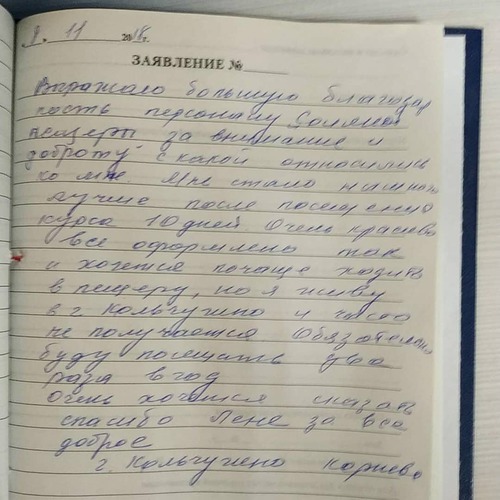 9. 11 2018г.
ЗАЯВЛЕНИЕ №
Выражаю большую благодар
ность персоналу Соляной
пещеры за внимание и
доброту с какой относились
ко мне. Мне стало намного
лучше после посещения
курса 10 дней. Очень красиво
все оформлено так
и хочется почаще ходить
в пещеру, но я живу
в г. Кольчугино и часто
не получается. Обязательно
буду посещать два
раза в год
Очень хочется сказать
спасибо Лене за все
доброе
г. Кольчугино